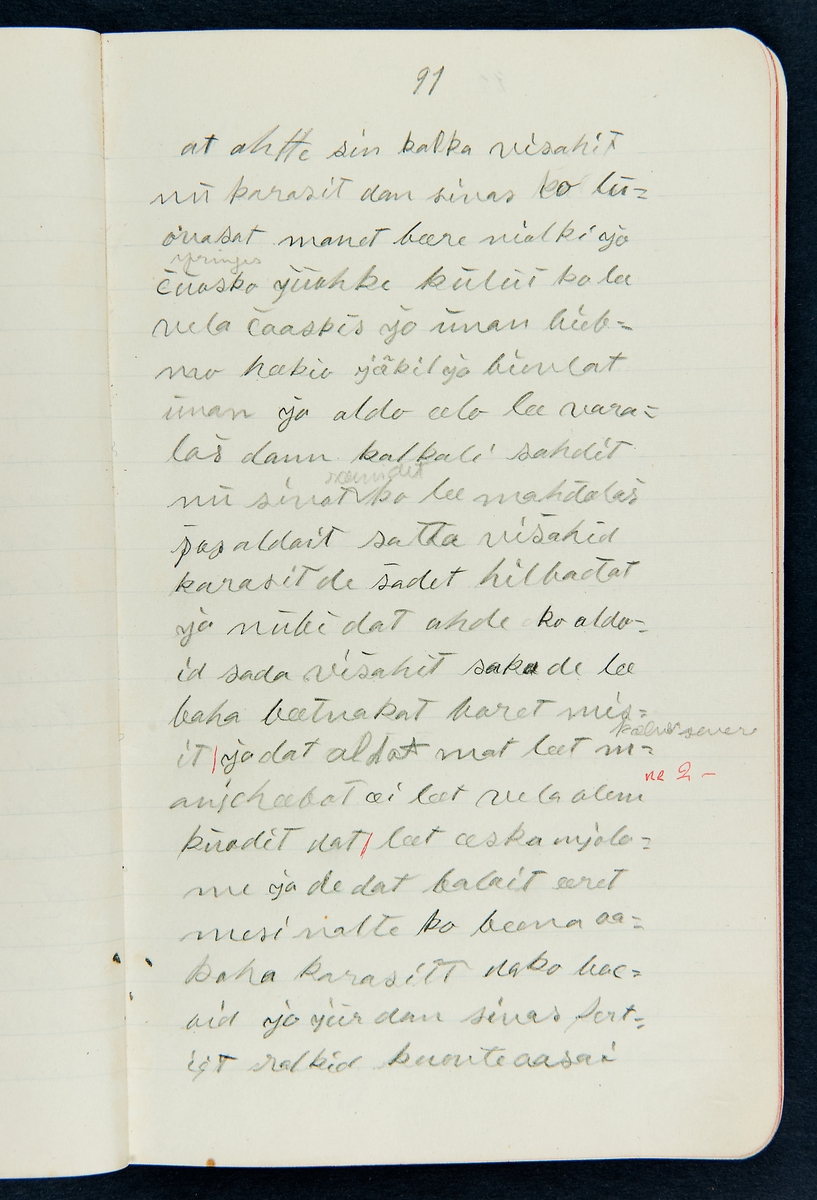 91
at ahtte sin kalka visahit
nu karasit dan sivas ko lu=
ovasat manet bære nialki jo
čuosko juohke kulut ko læ
vela čaaskis jo unan bieb=
mo hækio jäkil jo bioulat
unan jo aldo ælo læ vara=
las dann kalkali sahdit
raimdit
nu sivat ko læ mahdolas
jos aldait satta višahid
karasit de šadet hilbadat
jo nubi dat ahde ko aldo=
id sada višahit saka de læ
baha bætnakat haret mis=
it jo dat aldot mat læt m=
na 2 –
anjchæbat æi læt vela alem
kuodit dat læt æska mjola=
me ja de dat balait æret
mesi nalte ko bæna aa=
kaha karasitt dako boc=
oid jo jur dan sivas fert=
igt ralkid kuonteaasai